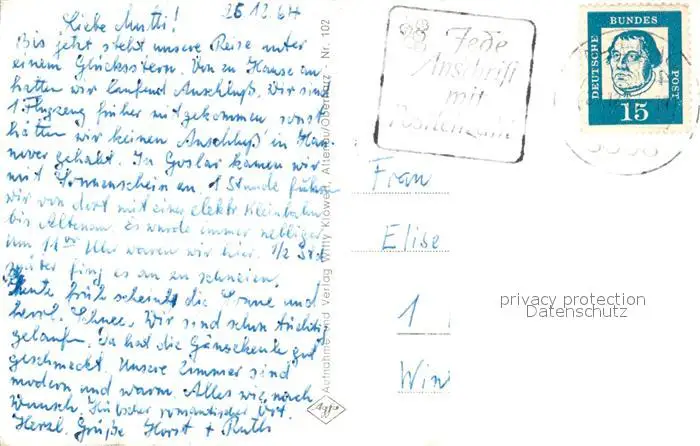 25.12.64
Liebe Mutti!
Bis jetzt steht unsere Reise unter
einem Glücksstern. Von zu Hause an
hatten wir laufend Anschluß. Wir sind
1 Flugzeug früher mitgekommen sonst
hätten wir keinen Anschluß in Han
nover gehabt. In Goslar kamen wir
mit Sonnenschein an. 1 Stunde fuhren
wir von dort mit einer elektr. Kleinbahn
bis Altenau. Es wurde immer nebliger
um 11 Uhr waren wir hier. 1/2 Std
später fing es an zu schneien.
Heute früh scheint die Sonne und
herrl. Schnee. Wir sind schon tüchtig
gelaufen. Da hat die Gänsekeule gut
geschmeckt. Unsere Zimmer sind
modern und warm. Alles wie nach
Wunsch. Hübscher romantischer Ort.
Herzl. Grüße Horst + Ruth
Aufnahme und Verlag Willy Klowert, Altenau/Oberharz - Nr. 102
Agfa
Jede
Anschrift
mit
Postleitzahl
DEUTSCHE BUNDES POST
15
Frau
Elise
1
Win
privacy protection
Datenschutz